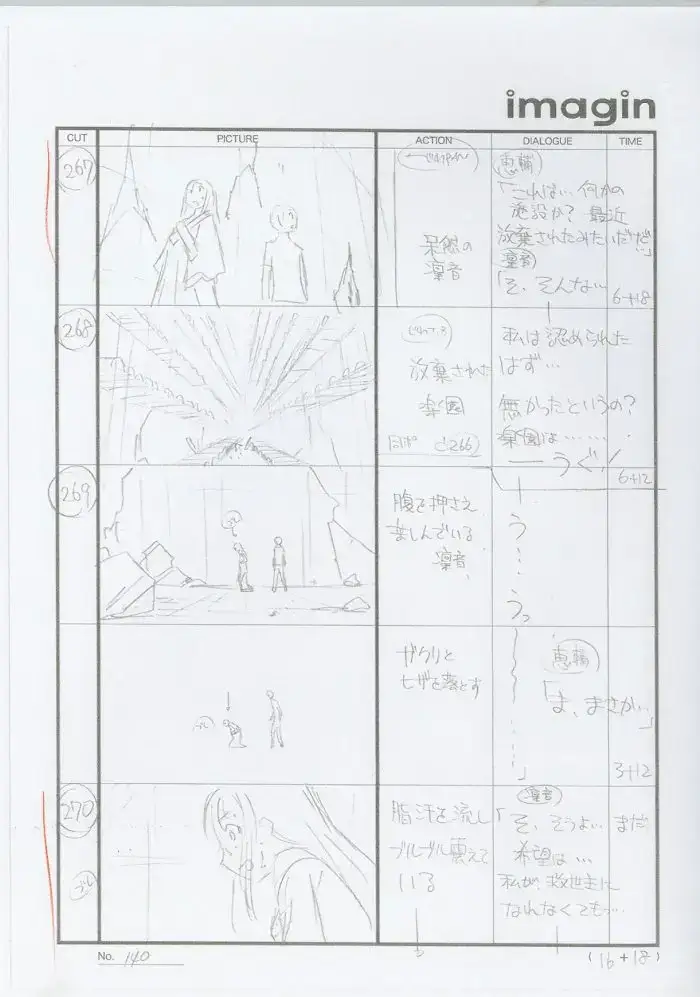 imagin
CUT PICTURE ACTION DIALOGUE TIME
267
呆然の
凛音
恵輔
「こんな… 何かの
施設か? 最近
放棄されたみたいだぞ」
凛音
「そ、そんな…
6+18
268
放棄された
楽園
同ポ C(266)
私は認められた
はず…
無かったというの?
楽園は………
うぐ!
6+12
269
腹を押さえ
苦しんでいる
凛音
う…
うっ
ガクリと
ヒザを落とす
恵輔
「ま、まさか…」
3+12
270
脂汗を流し
ブルブル震えて
いる
凛音
「そ、そうよ… まだ
希望は…
私が、救世主に
なれなくても…
No. 140
(16+18)